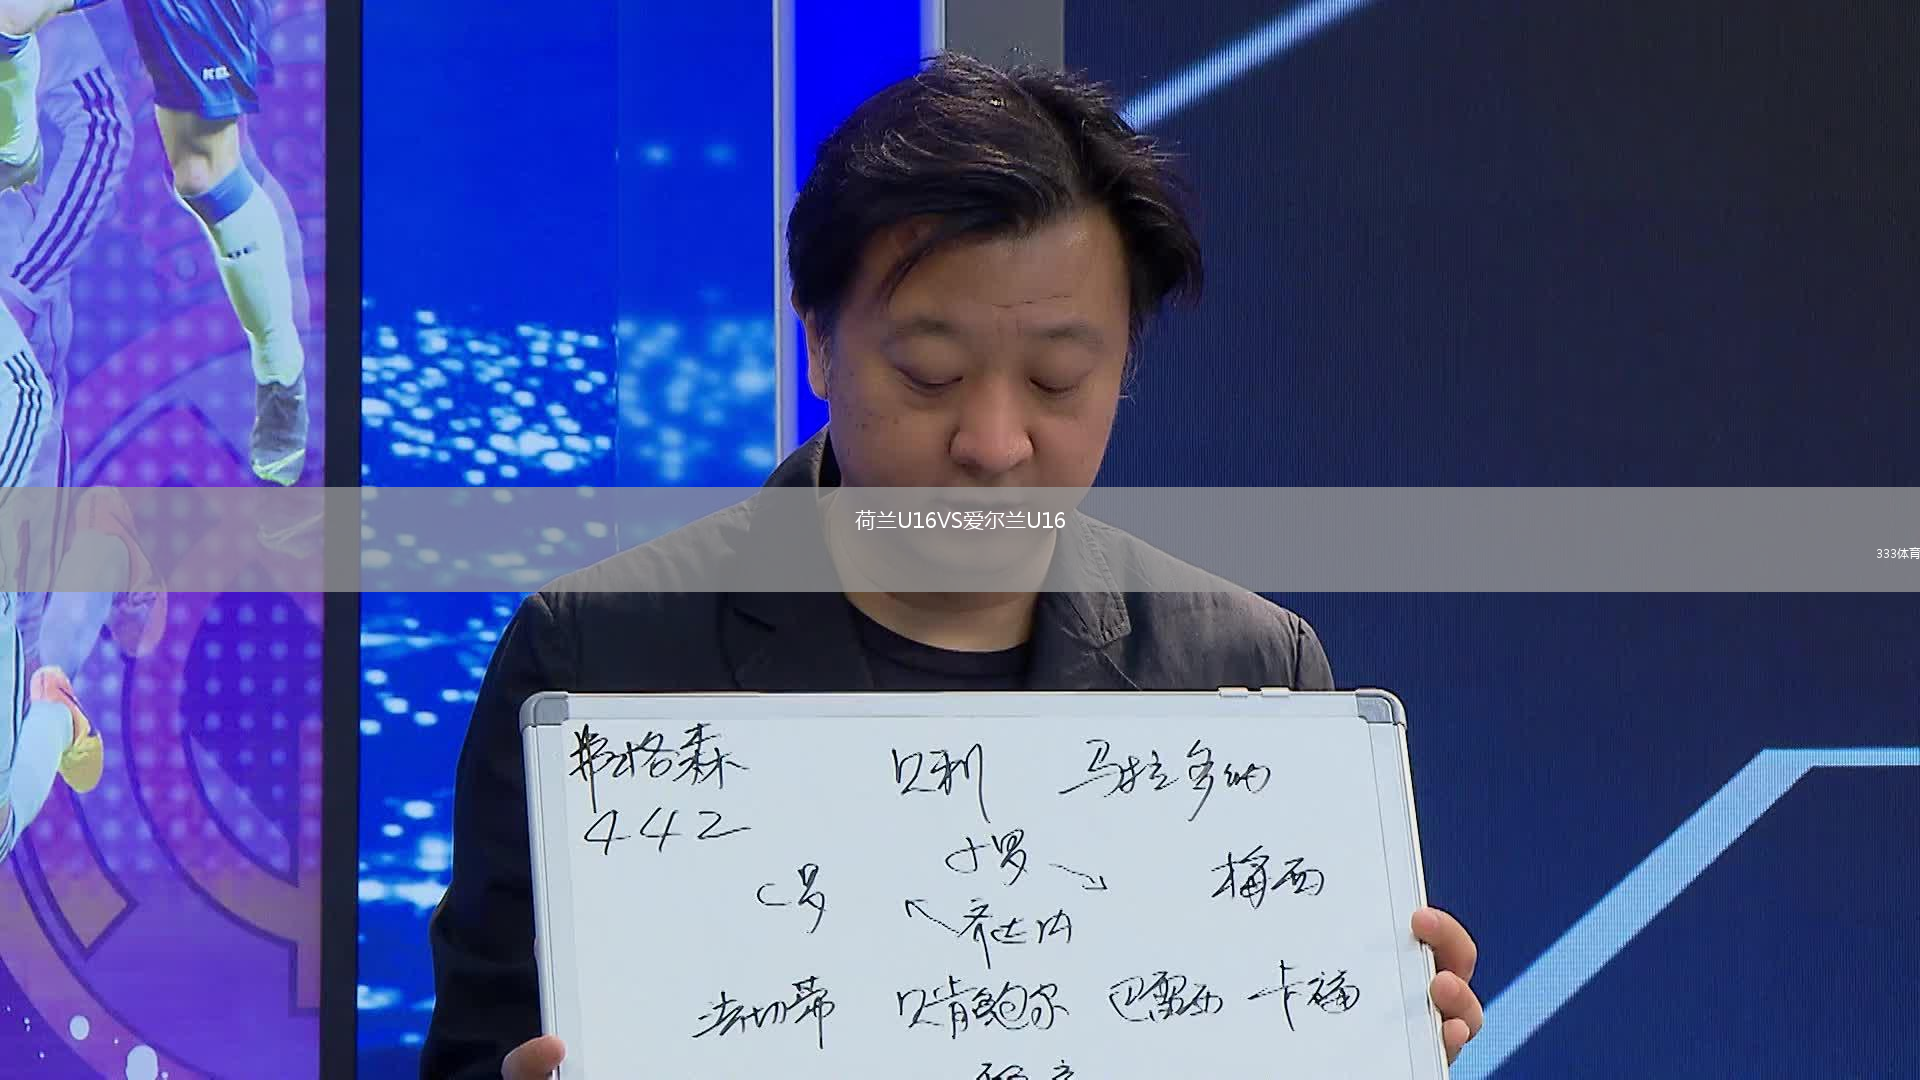 荷兰U16VS爱尔兰U16
333体育
弗格森 贝利 马拉多纳
442
小罗
C罗 梅西
齐达内
法切蒂 贝肯鲍尔 巴雷西 卡福